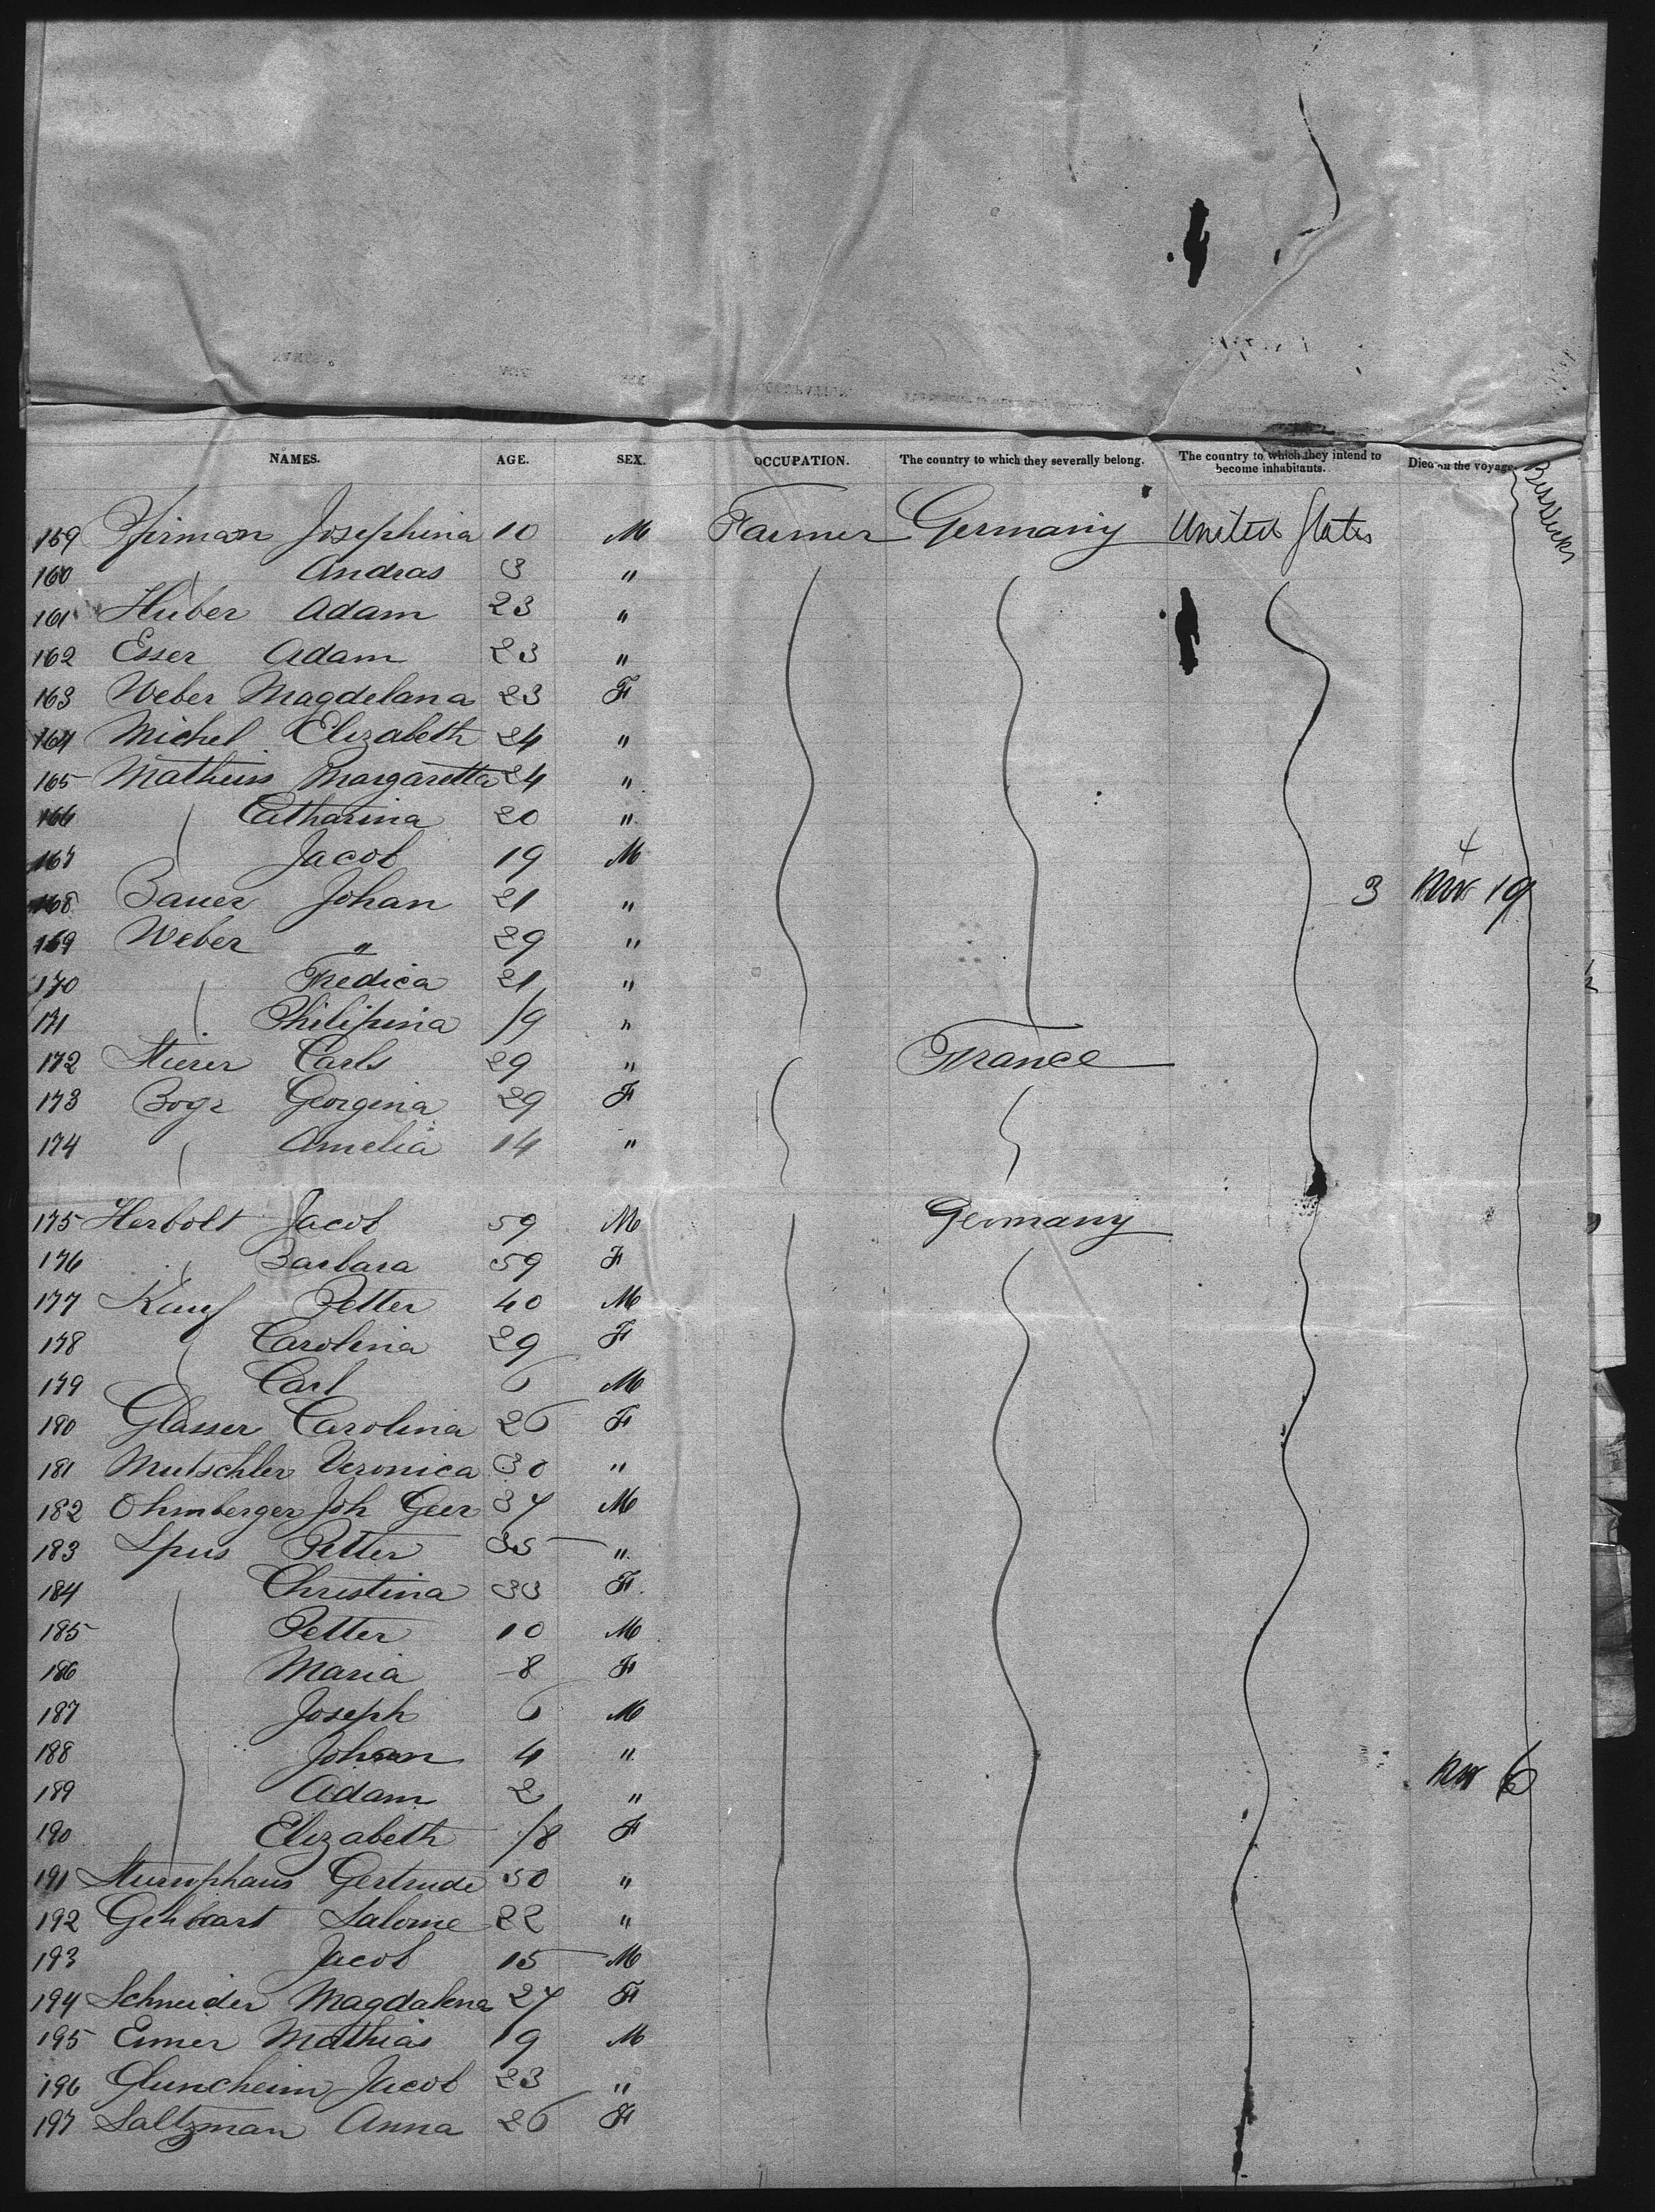 NAMES. AGE. SEX. OCCUPATION. The country to which they severally belong. The country to which they intend to become inhabitants. Died on the voyage.
159 Josephina 10 M Farmer Germany United States
160 Andras 3 "
161 Huber Adam 23 "
162 Esser Adam 23 "
163 Weber Magdelana 23 F
164 Michel Elizabeth 24 "
165 Matheis Margaretta 24 "
166 Catharina 20 "
167 Jacob 19 M
168 Bauer Johan 21 " 3 Nov 19
169 Weber " 29 "
170 Fredica 21 "
171 Philipina /9 "
172 Stierer Carls 29 " France
173 Georgina 29 F
174 Amelia 14 "
175 Herbolt Jacob 59 M Germany
176 Barbara 59 F
177 Kauf Petter 40 M
178 Carolina 29 F
179 Carl 6 M
180 Glasser Carolina 26 F
181 Mutschler Veronica 30 "
182 Ohmberger Joh Geer 37 M
183 Spus Petter 35 "
184 Christina 33 F
185 Petter 10 M
186 Maria 8 F
187 Joseph 6 M
188 Johan 4 "
189 Adam 2 " Nov 6
190 Elizabeth /8 F
191 Gertrude 50 "
192 Gehbart Salome 22 "
193 Jacob 15 M
194 Schneider Magdalena 27 F
195 Emer Mathias 19 M
196 Gluncheim Jacob 23 "
197 Saltzman Anna 26 F